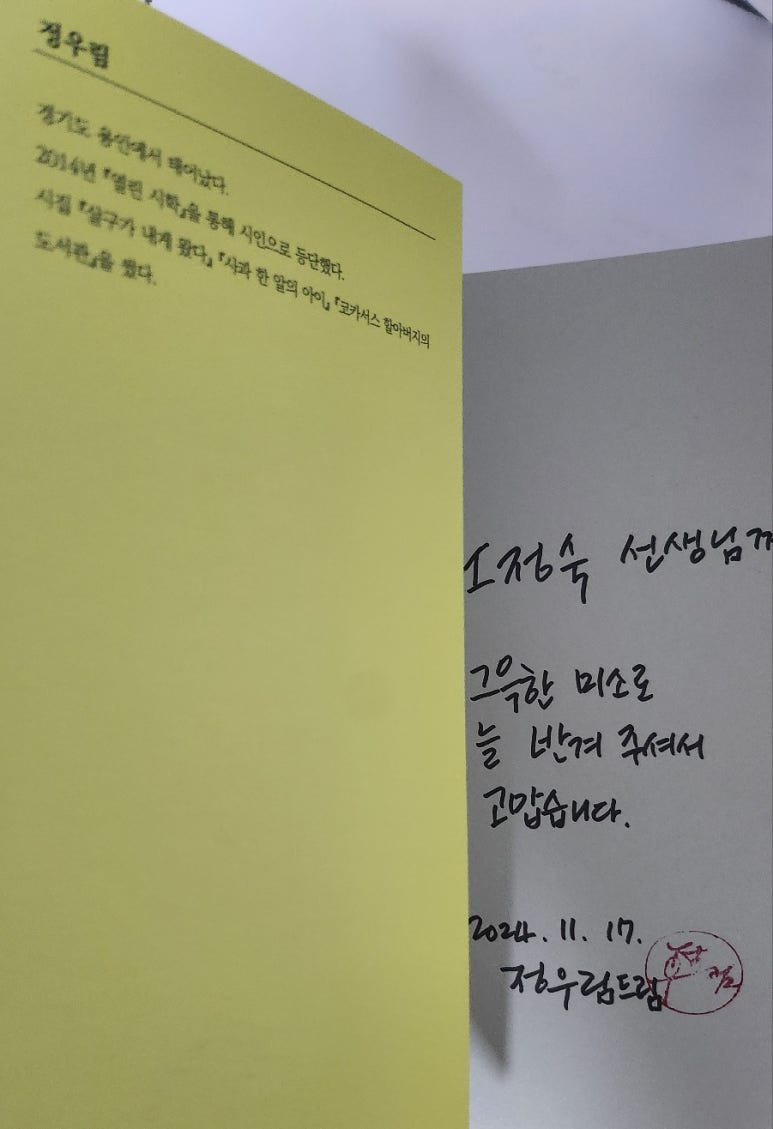 정우림
경기도 용인에서 태어났다.
2014년 『열린 시학』을 통해 시인으로 등단했다.
시집 『살구가 내게 왔다』 『사과 한 알의 아이』 『코카서스 할아버지의
도서관』을 썼다.
소정숙 선생님께
그윽한 미소로
늘 반겨 주셔서
고맙습니다.
2024. 11. 17.
정우림드림